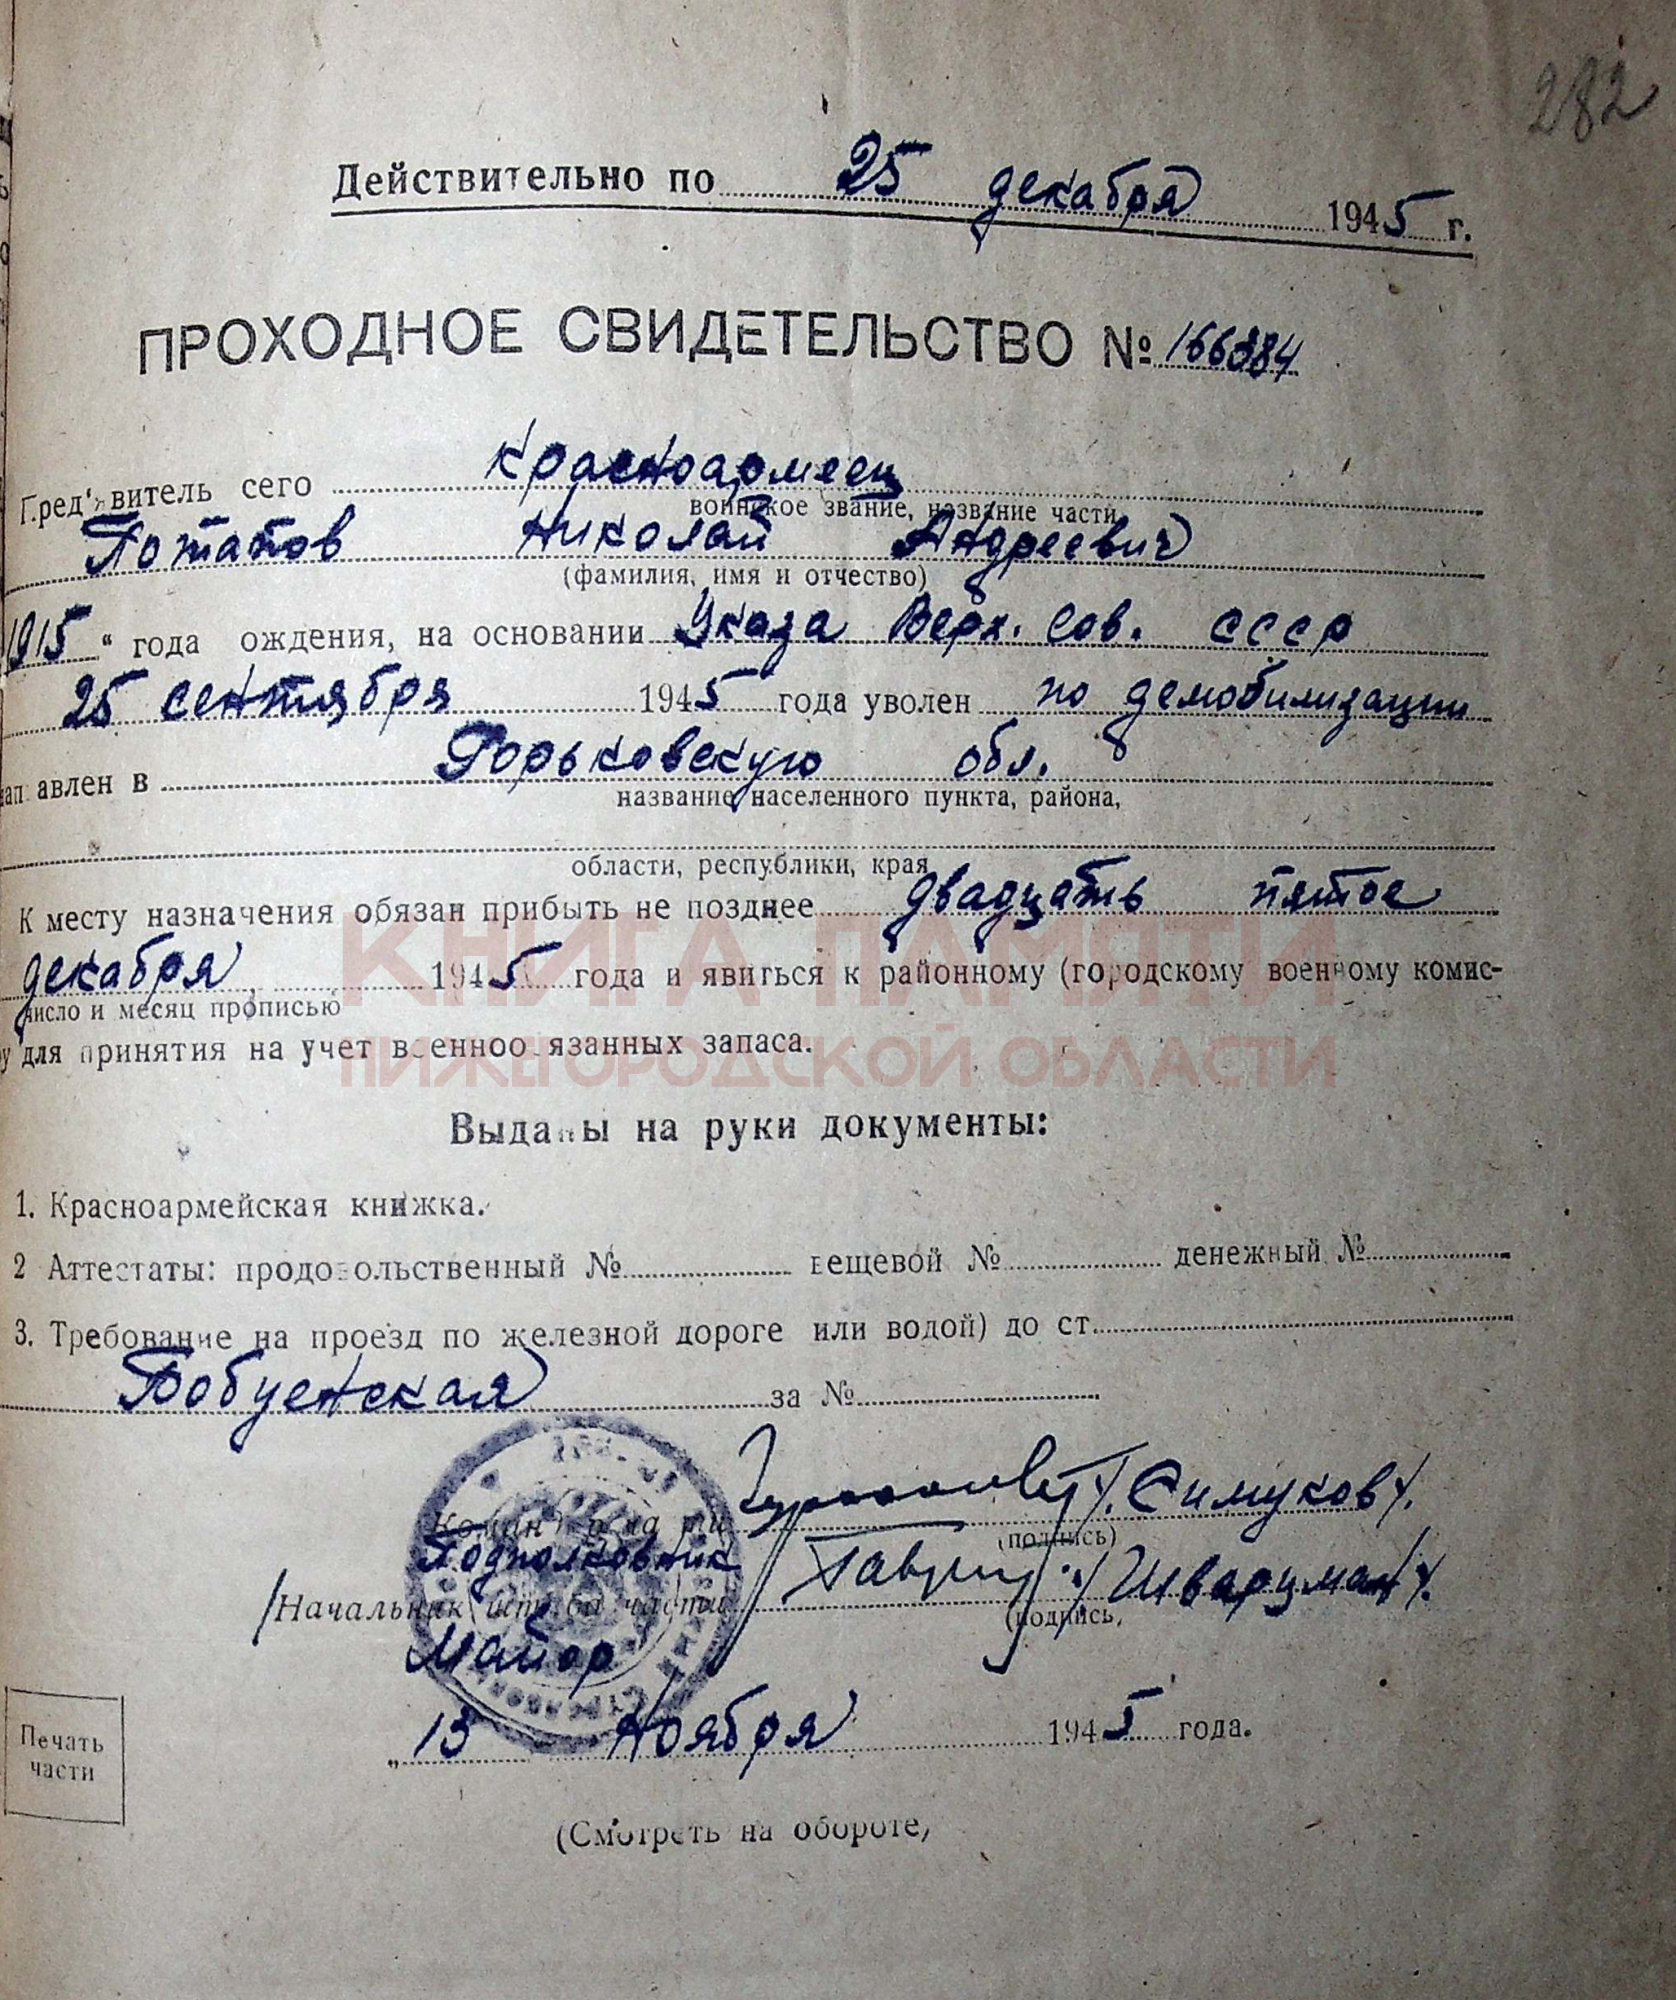 282
Действительно по 25 декабря 1945 г.
ПРОХОДНОЕ СВИДЕТЕЛЬСТВО № 166384
Пред'явитель сего красноармеец
воинское звание, название части
Потапов Николай Андреевич
(фамилия, имя и отчество)
1915 " года ождения, на основании Указа Верх. Сов. СССР
25 сентября 1945 года уволен по демобилизации
нап авлен в Горьковскую обл.
название населенного пункта, района,
области, республики, края
К месту назначения обязан прибыть не позднее двадцать пятое
декабря, 1945 года и явиться к районному (городскому военному комис-
число и месяц прописью
КНИГА ПАМЯТИ
у для принятия на учет военнообязанных запаса.
НИЖЕГОРОДСКОЙ ОБЛАСТИ
Выданы на руки документы:
1. Красноармейская книжка.
2 Аттестаты: продовольственный № вещевой № денежный №
3. Требование на проезд по железной дороге или водой) до ст.
за №
Командир части /Симуков/.
(подпись)
Подполковник
/Начальник штаба части /Шварцман/.
(подпись,
Майор
„ 13 ноября 1945 года.
Печать
части
(Смотреть на обороте)